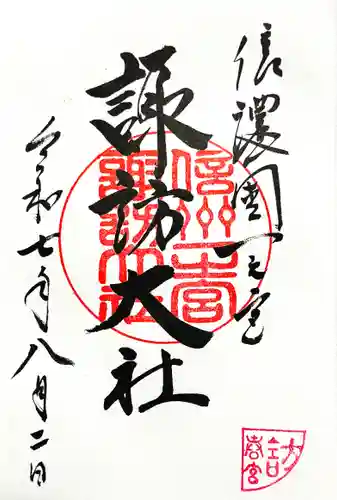 信濃國一之宮
諏訪大社
令和七年八月二日
信州一之宮
諏訪大社
諏訪
春宮